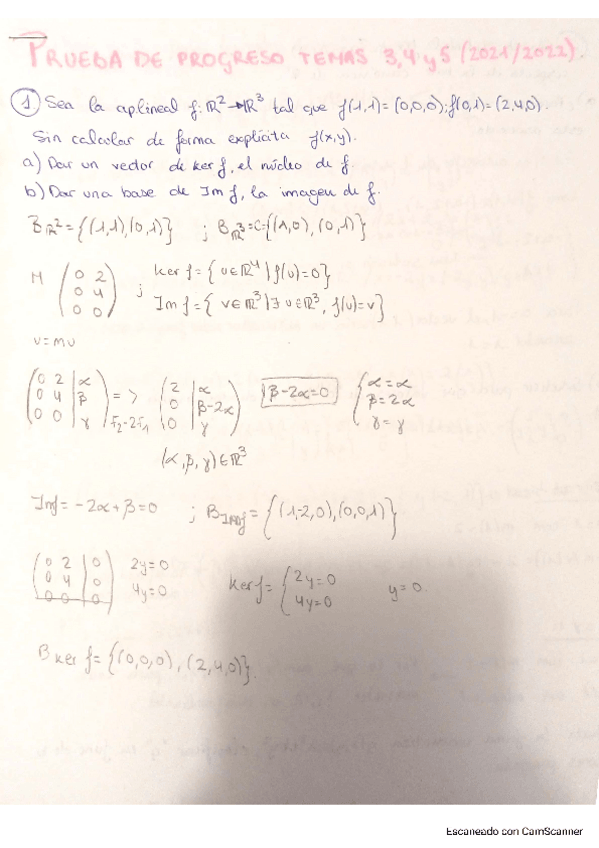 PRUEBA DE PROGRESO TEMAS 3,4 y 5 (2021/2022).
① Sea la aplineal f: ℝ² → ℝ³ tal que f(1,1) = (0,0,0); f(0,1) = (2,4,0).
Sin calcular de forma explícita f(x,y).
a) Dar un vector de ker f, el núcleo de f.
b) Dar una base de Im f, la imagen de f.
Bℝ² = {(1,1),(0,1)} ; Bℝ³ = C = {(1,0),(0,1)}
M ( 0 2 ; 0 4 ; 0 0 ) ; ker f = { u∈ℝ⁴ | f(u) = 0 }
Im f = { v∈ℝ³ | ∃ u∈ℝ³, f(u) = v }
v = Mu
( 0 2 | α ; 0 4 | β ; 0 0 | γ ) => F₂-2F₁ ( 2 | α ; 0 | β-2α ; 0 | γ ) β-2α=0 { α=α ; β=2α ; γ=γ
(α, β, γ) ∈ ℝ³
Imf = -2α + β = 0 ; B Imf = {(1,-2,0),(0,0,1)}
( 0 2 | 0 ; 0 4 | 0 ; 0 0 | 0 ) 2y=0 4y=0 ker f = { 2y=0 ; 4y=0 y=0.
B ker f = {(0,0,0), (2,4,0)}.
Escaneado con CamScanner